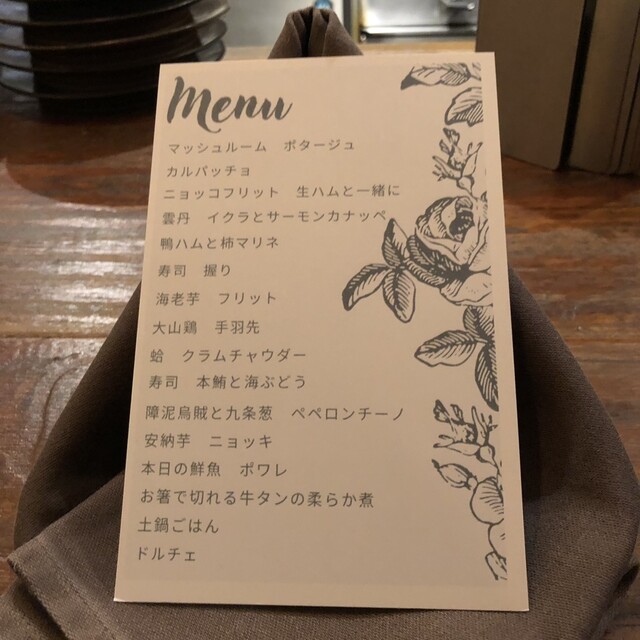 Menu
マッシュルーム　ポタージュ
カルパッチョ
ニョッコフリット　生ハムと一緒に
雲丹　イクラとサーモンカナッペ
鴨ハムと柿マリネ
寿司　握り
海老芋　フリット
大山鶏　手羽先
蛤　クラムチャウダー
寿司　本鮪と海ぶどう
障泥烏賊と九条葱　ペペロンチーノ
安納芋　ニョッキ
本日の鮮魚　ポワレ
お箸で切れる牛タンの柔らか煮
土鍋ごはん
ドルチェ